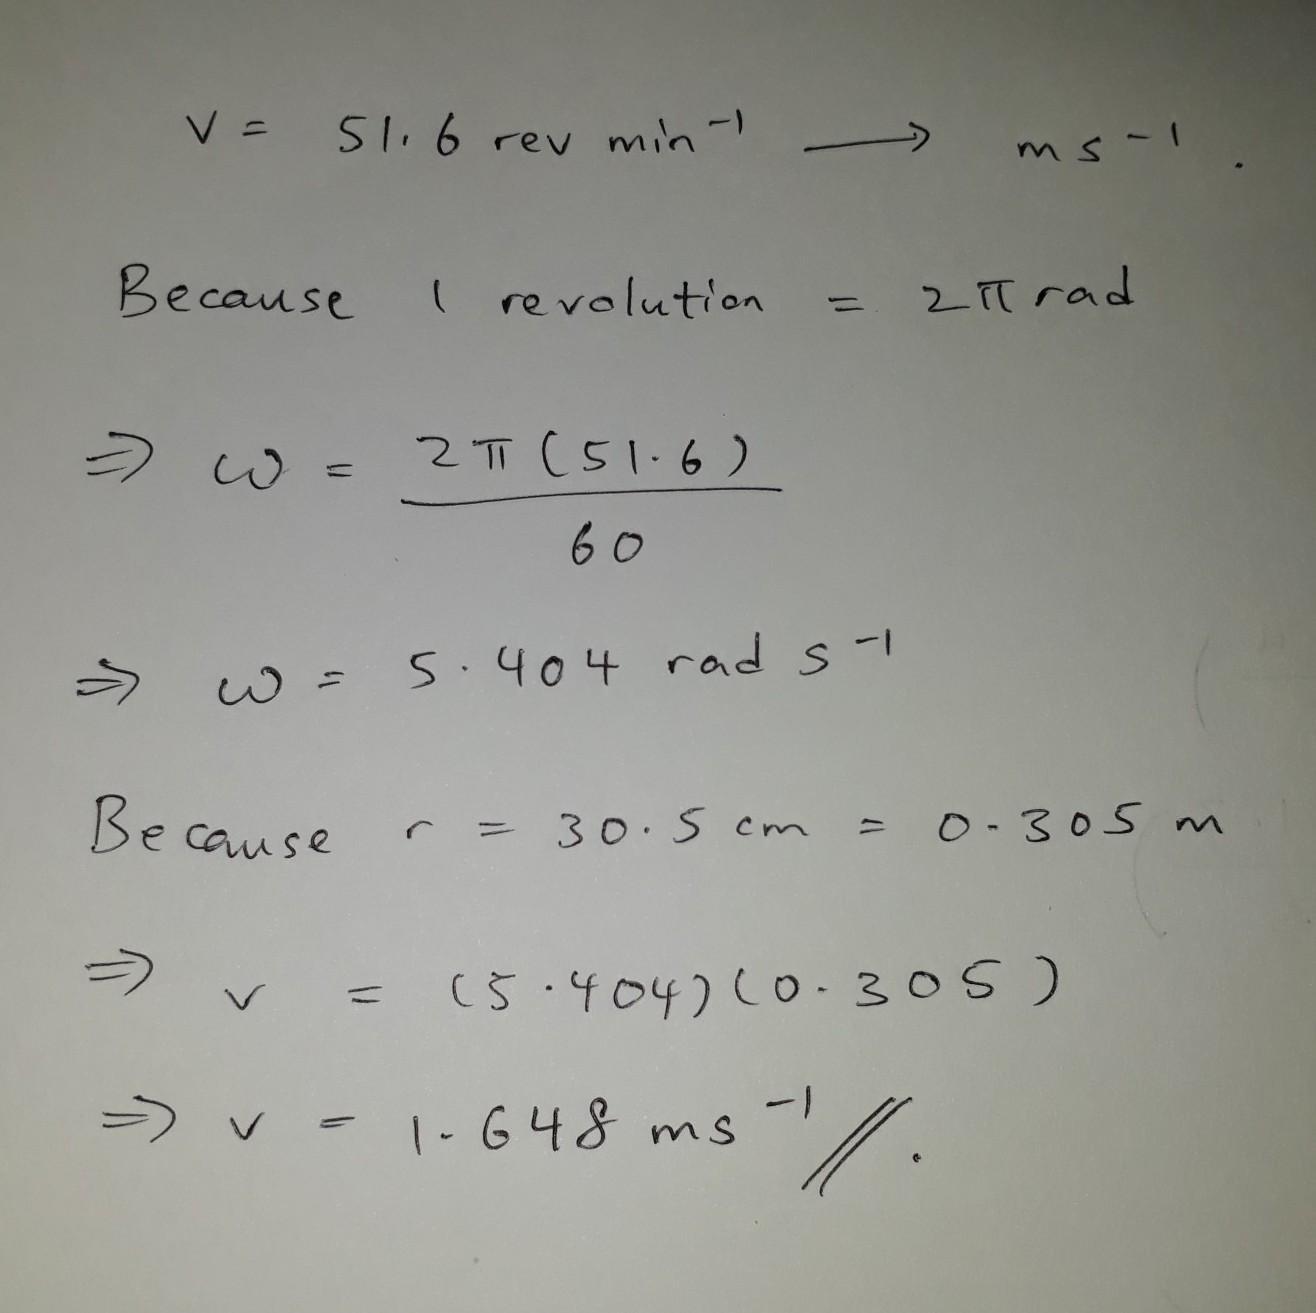 v = 51.6 rev min⁻¹ → ms⁻¹.
Because 1 revolution = 2π rad
⇒ ω = 2π(51.6)
60
⇒ ω = 5.404 rad s⁻¹
Because r = 30.5 cm = 0.305 m
⇒ v = (5.404)(0.305)
⇒ v = 1.648 ms⁻¹//.